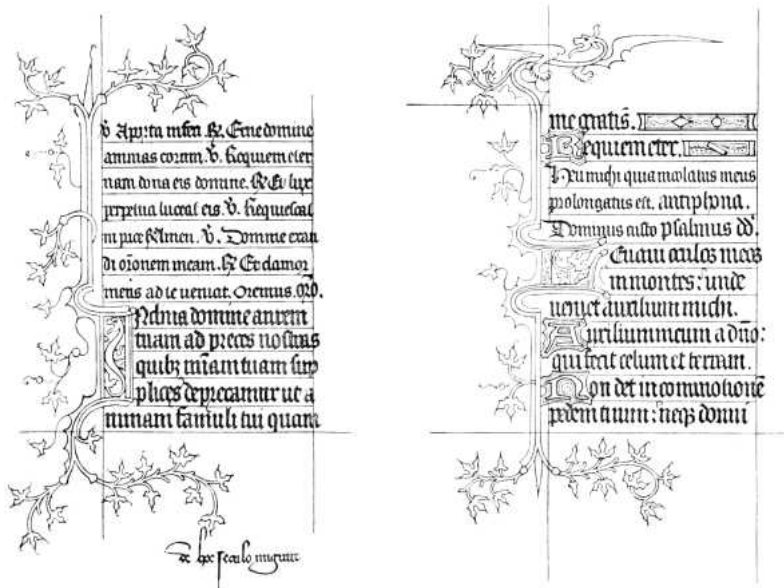 v̄ Aporta inferi. R̄. Erue domine
animas eorum. v̄. Requiem eter
nam dona eis domine. R̄ Et lux
perpetua luceat eis. v̄. Requiescat
in pace R̄ Amen. v̄. Domine exau
di or̄onem meam. R̄ Et clamor
meus ad te ueniat. Oremus. or̄o.
INclina domine aurem
tuam ad preces nostras
quibꝫ mīam tuam sup
plices deprecamur ut a
nimam famuli tui quam
de hoc seculo migrare
me gratis.
Requiem eter.
Heu michi quia incolatus meus
prolongatus est. antiphona.
Dominus custo psalmus dd̄.
Leuaui oculos meos
in montes : unde
ueniet auxilium michi.
Auxilium meum a dn̄o :
qui fecit celum et terram.
Non det in commotionē
pedem tuum : neqꝫ dormi